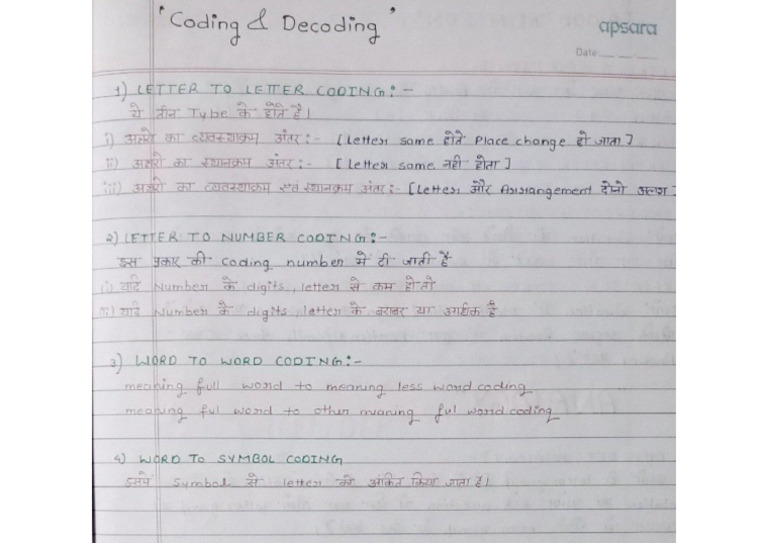 "Coding & Decoding"
apsara
Date
1) LETTER TO LETTER CODING:-
ये तीन Type के होते है।
i) अक्षरो का व्यवस्थाक्रम अंतर:- [Letter same होते Place change हो जाता]
ii) अक्षरो का स्थानक्रम अंतर:- [Letter same नही होता]
iii) अक्षरो का व्यवस्थाक्रम एवं स्थानक्रम अंतर:- [Letter और Arrangement दोनो अलग]
2) LETTER TO NUMBER CODING:-
इस प्रकार की coding number में दी जाती है
(i) यदि Number के digits, letter से कम हो तो
(ii) यदि Number के digits, letter के बराबर या अधिक है
3) WORD TO WORD CODING:-
meaning full word to meaning less word coding
meaning ful word to other meaning ful word coding
4) WORD TO SYMBOL CODING
इसमे Symbol से letter को अंकित किया जाता है।